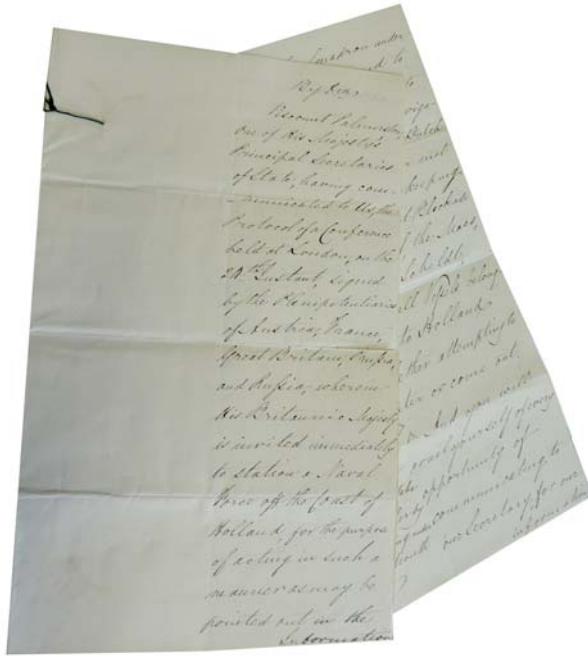 By &c
Viscount Palmerston
one of His Majesty's
Principal Secretaries
of State, having com-
-municated to Us, the
Protocol of a Conference
held at London, on the
24th Instant, signed
by the Plenipotentiaries
of Austria, France,
Great Britain, Prussia,
and Russia, wherein
His Britannic Majesty
is invited immediately
to station a Naval
Force off the Coast of
Holland, for the purpose
of acting in such a
manner as may be
pointed out in the
Information
Squadron under
to
Dutch
not
keeping
Blockade
the Maas,
Scheldt,
belong
to Holland
attempting to
or come out.
And you will
avail yourself of every
opportunity of
communicating to
our Secretary, for our
information